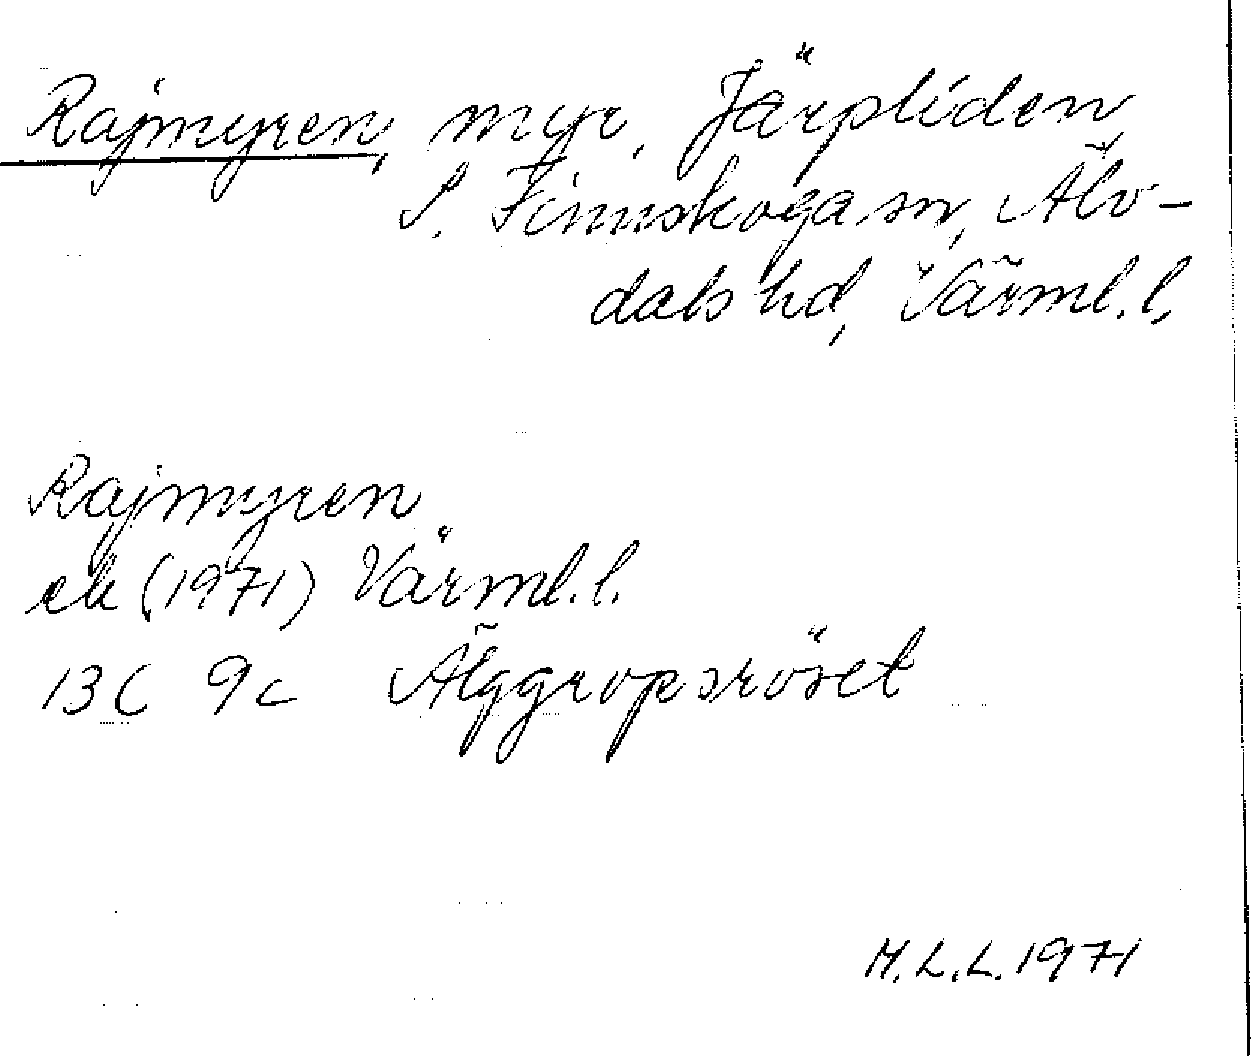 Rajmyren, myr, Järpliden,
S. Finnskoga sn, Älv-
dals hd, Värml. l.
Rajmyren
ek (1971) Värml. l.
13C 9c Älggropsröset
M.L.L. 1971